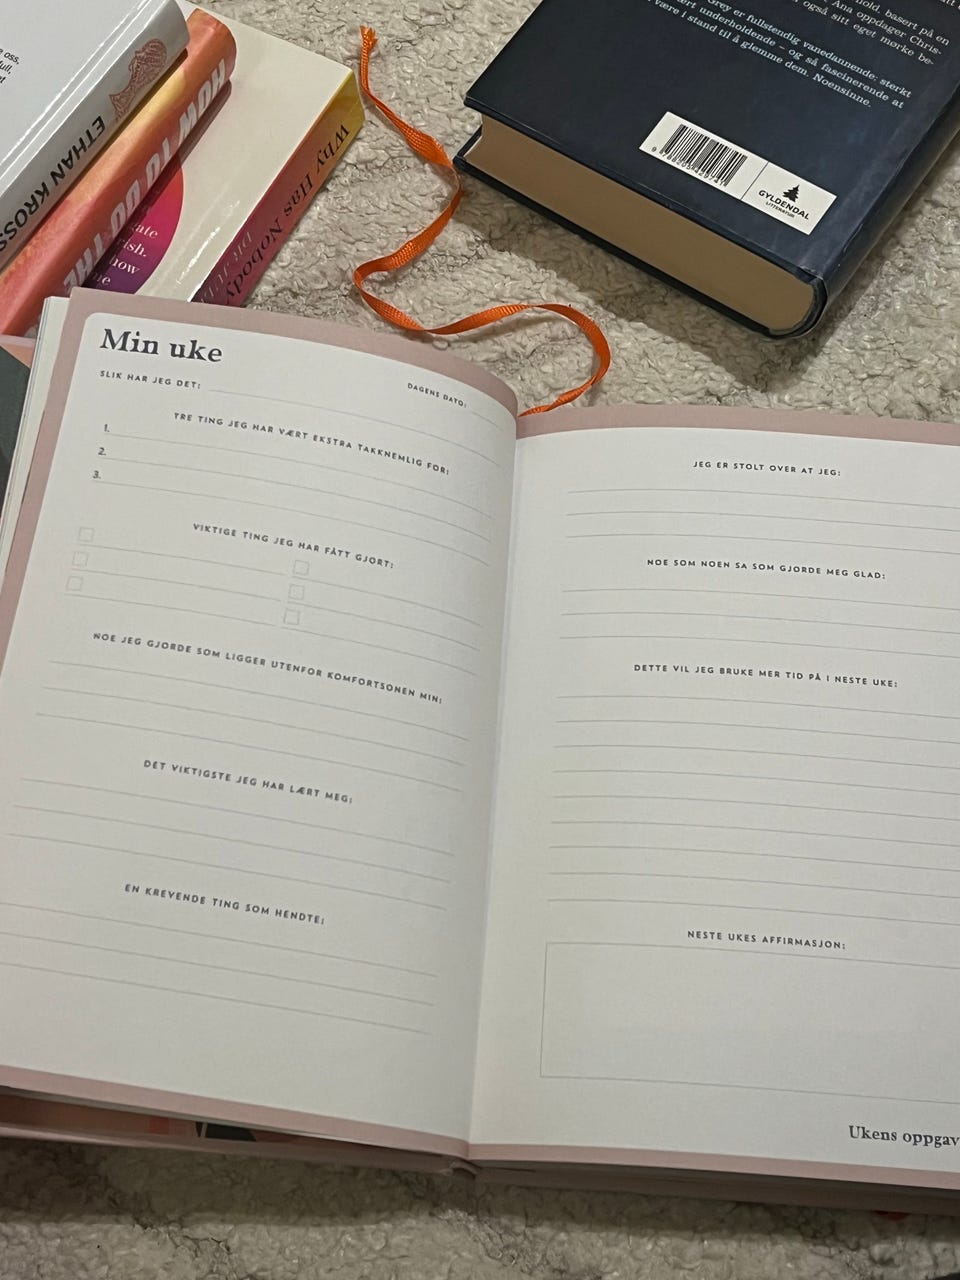 oss,
full,
et
ETHAN KROSS
HOW TO DO THE
Why Has Nobody
ate
rish.
now
e
hold, basert på en
Ana oppdager Chris-
også sitt eget mørke be-
Grey er fullstendig vanedannende; sterkt
ært underholdende – og så fascinerende at
være i stand til å glemme dem. Noensinne.
GYLDENDAL
LITTERATUR
Min uke
SLIK HAR JEG DET:
DAGENS DATO:
TRE TING JEG HAR VÆRT EKSTRA TAKKNEMLIG FOR:
1.
2.
3.
VIKTIGE TING JEG HAR FÅTT GJORT:
NOE JEG GJORDE SOM LIGGER UTENFOR KOMFORTSONEN MIN:
DET VIKTIGSTE JEG HAR LÆRT MEG:
EN KREVENDE TING SOM HENDTE:
JEG ER STOLT OVER AT JEG:
NOE SOM NOEN SA SOM GJORDE MEG GLAD:
DETTE VIL JEG BRUKE MER TID PÅ I NESTE UKE:
NESTE UKES AFFIRMASJON:
Ukens oppgav